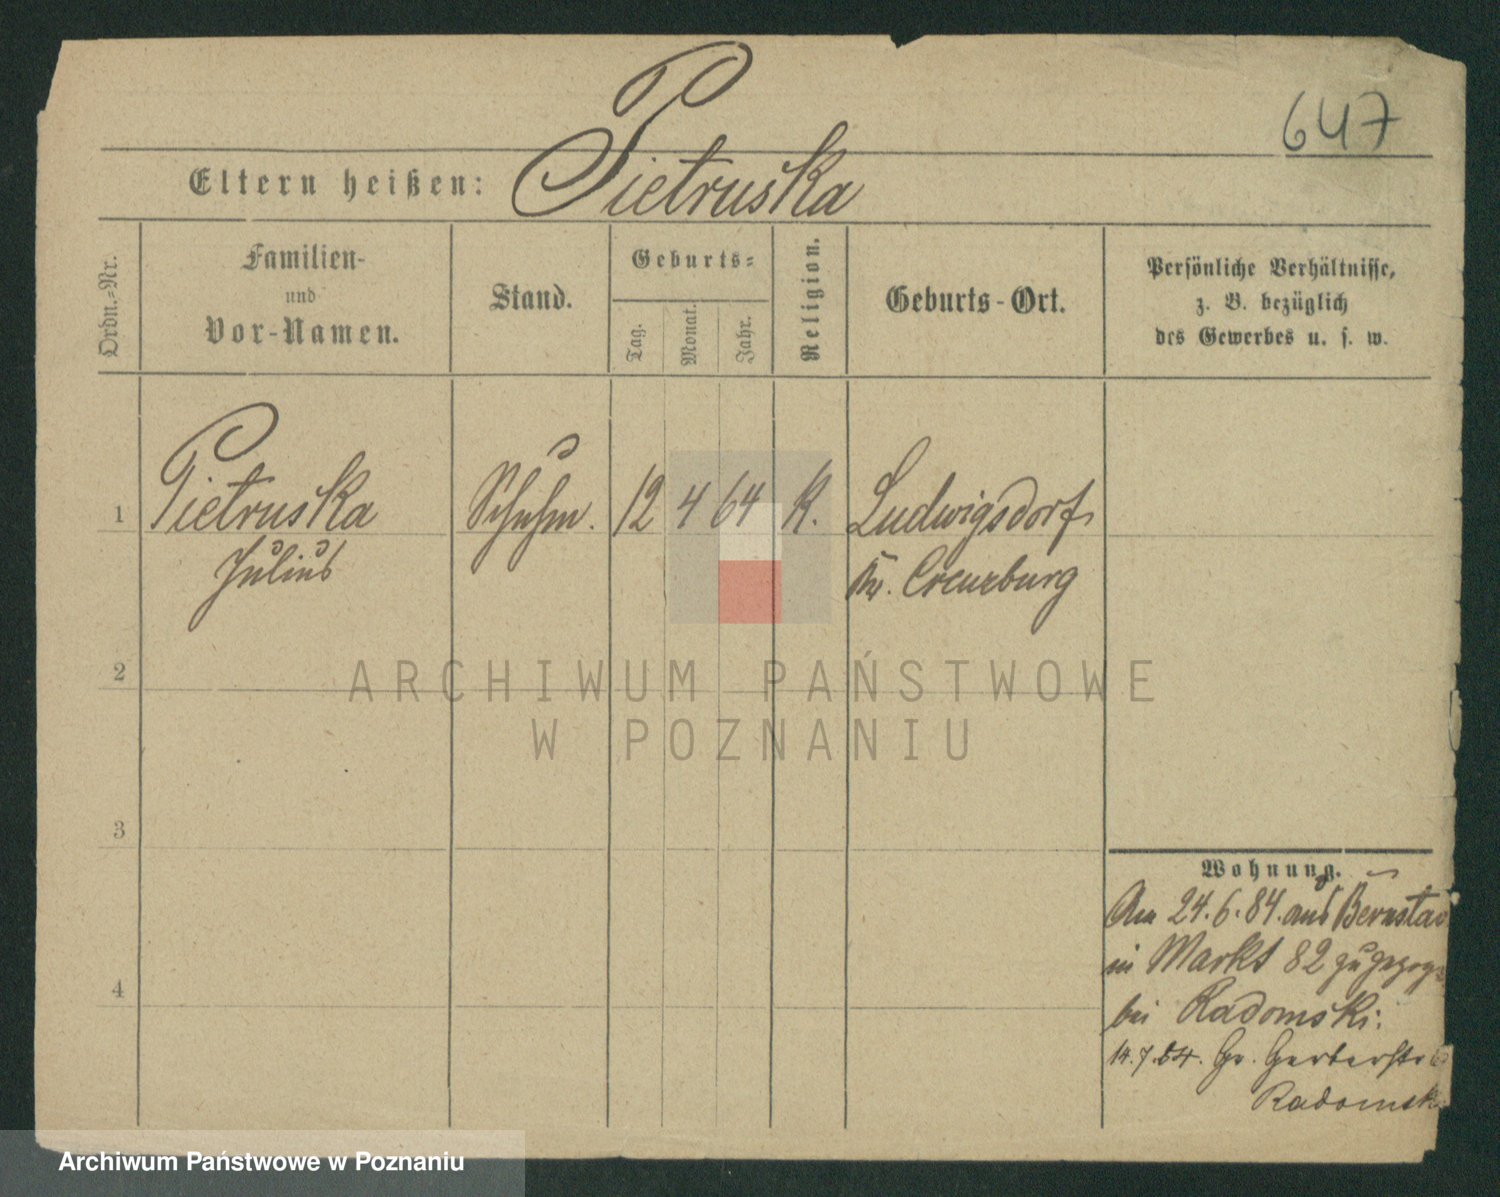 647
Eltern heißen: Pietruska
Ordn.-Nr.
Familien-
und
Vor-Namen.
Stand.
Geburts-
Tag.
Monat.
Jahr.
Religion.
Geburts-Ort.
Persönliche Verhältnisse,
z. B. bezüglich
des Gewerbes u. s. w.
1 Pietruska Schuhm. 12 4 64 K. Ludwigsdorf
Julius Kr. Creuzburg
2
ARCHIWUM PAŃSTWOWE
W POZNANIU
3
Wohnung.
Am 24.6.84. aus Bernstad
in Markt 82 zugezog
4
bei Radomski.
14.7.84. Gr. Gerberstr
Radomsk
Archiwum Państwowe w Poznaniu